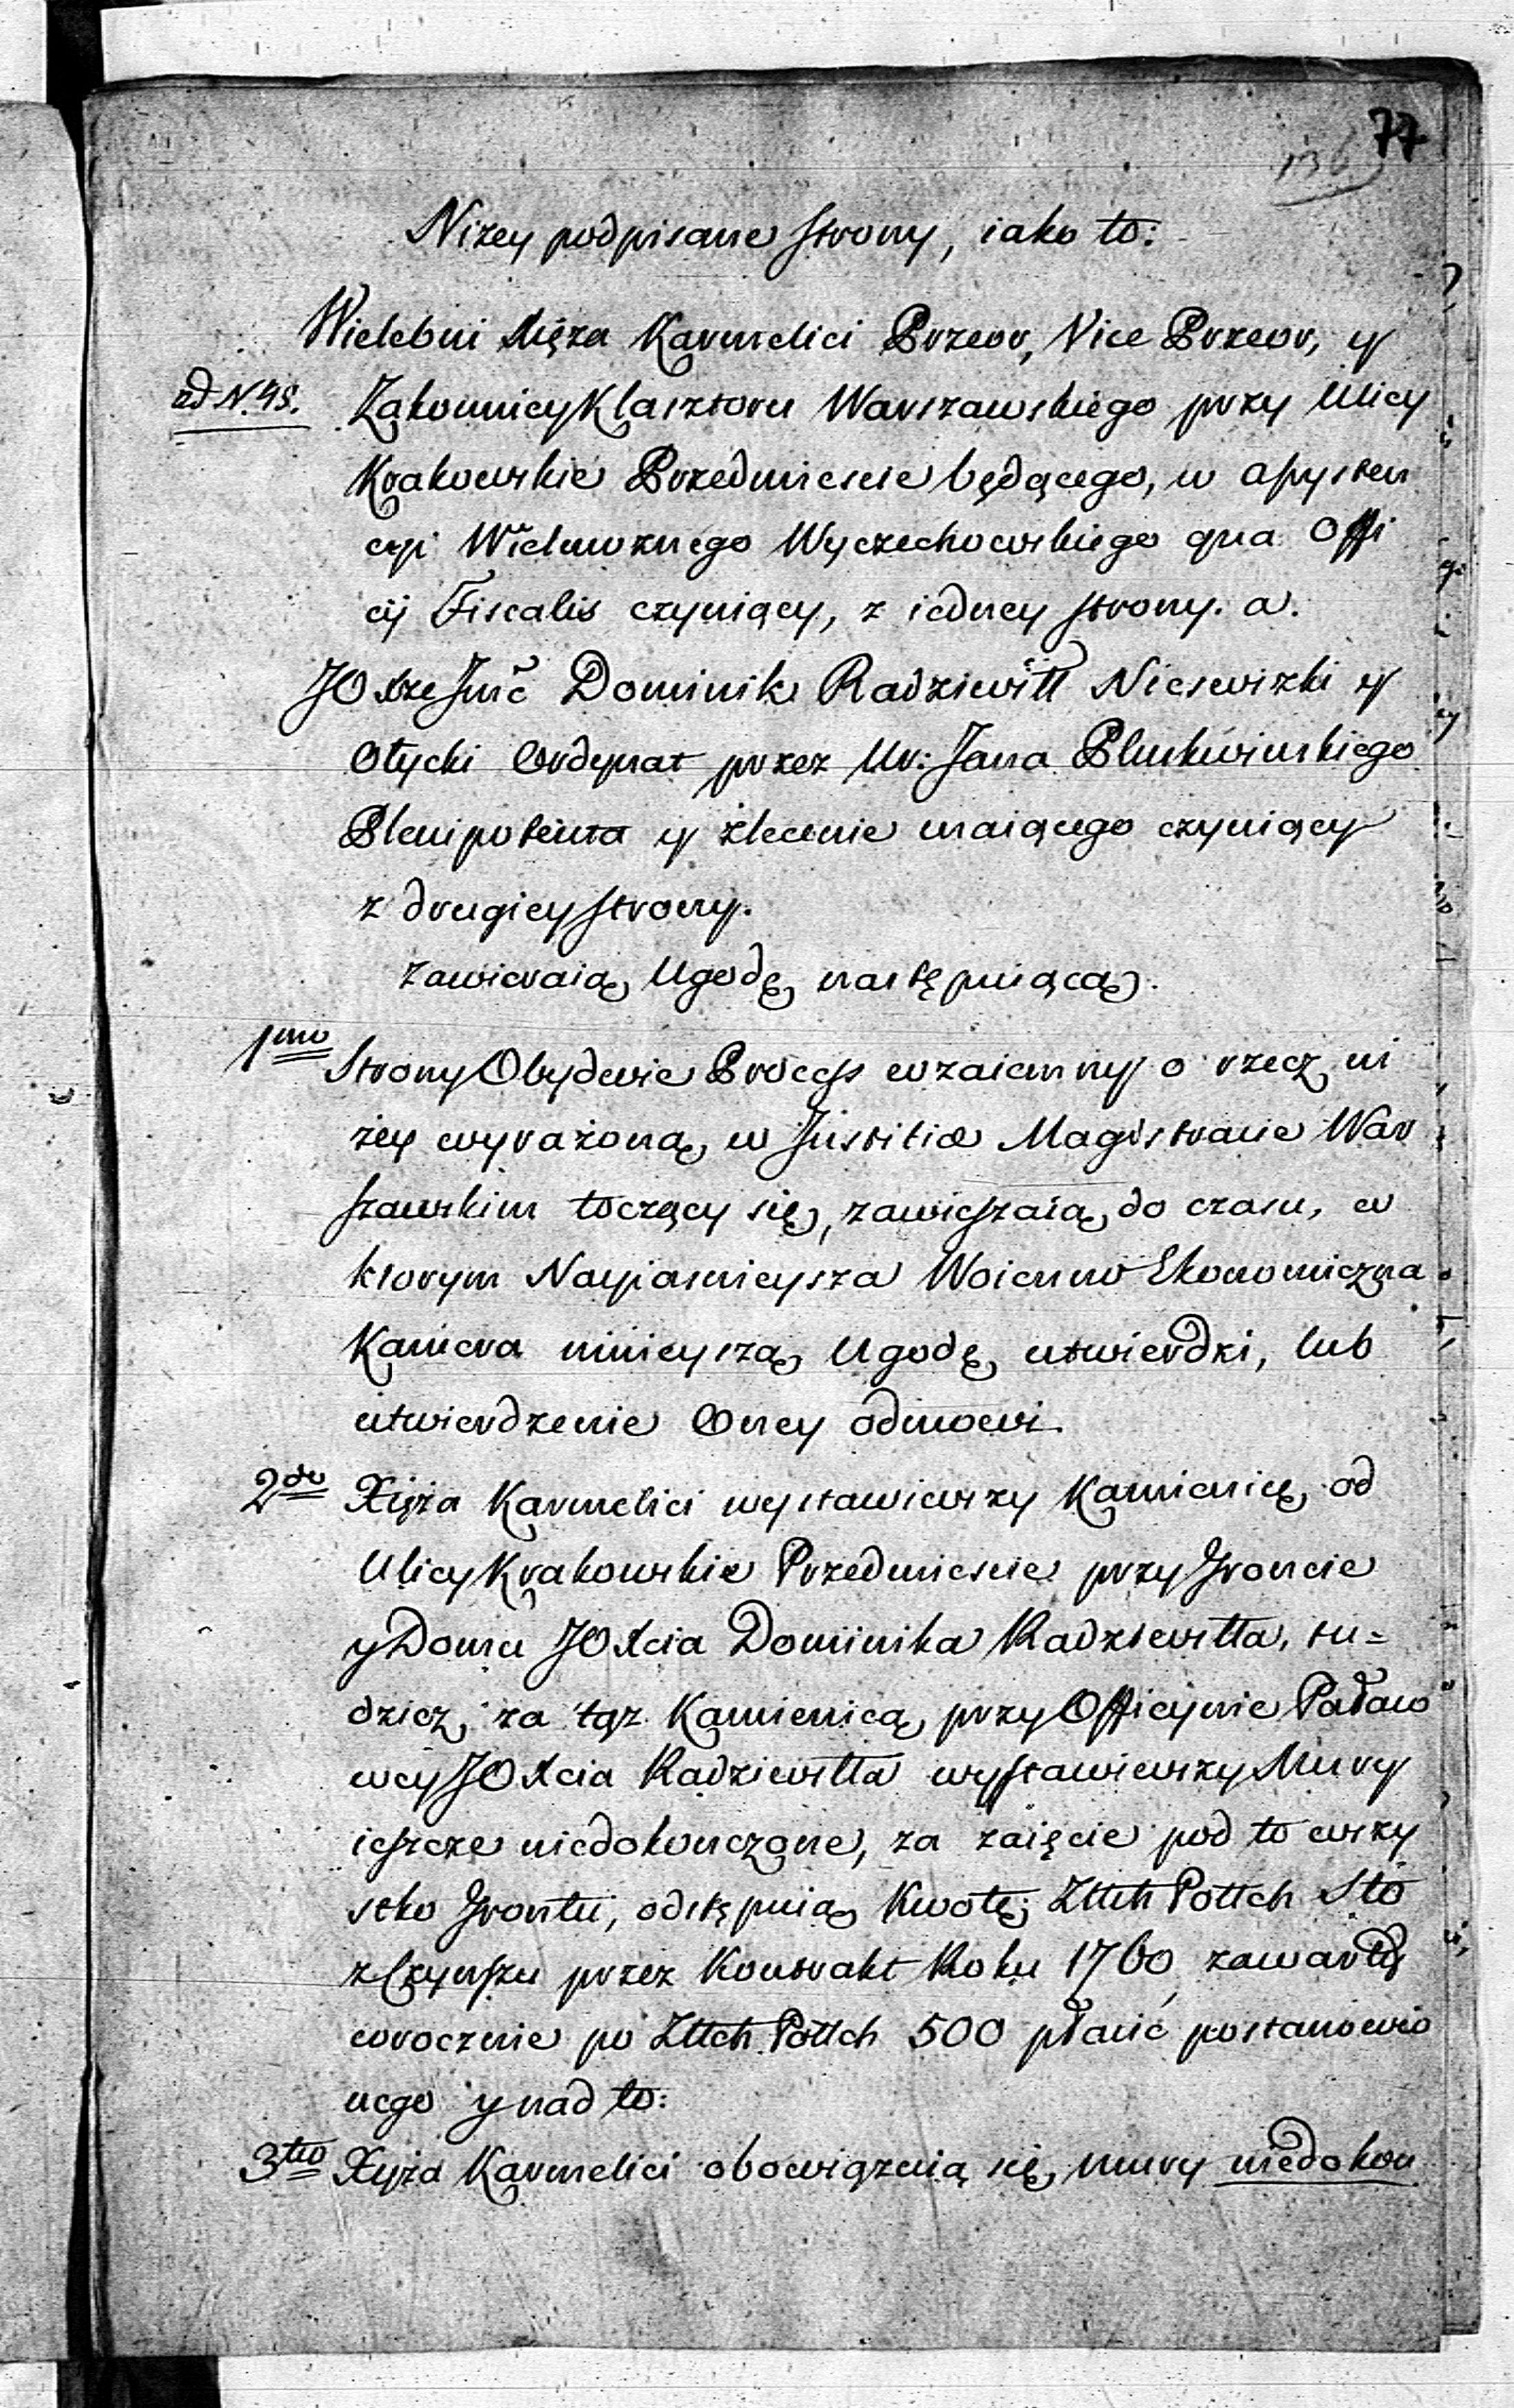 77
136
Nizey podpisane strony, iako to:
Wielebni Xięża Karmelici Przeor, Vice Przeor, y
ad N. 45.
Zakonnicy Klasztoru Warszawskiego przy Ulicy
Krakowskie Przedmiescie będącego, w assysten
cyi Wielmożnego Wyczechowskiego qua Offi
cij Fiscalis czyniący, z iedney strony. a.
JOXże Jmć Dominik Radziwiłł Nieswizki y
Ołycki Ordynat przez Ur: Jana
Plenipotenta y zlecenie maiącego czyniący
z drugiey strony.
zawieraią Ugodę następuiącą.
1mo
Strony Obydwie Process wzaiemny o rzecz ni
żey wyrażoną, w Justitiae Magistracie War
szawskim toczący się, zawieszaią do czasu, w
ktorym Nayiasnieysza Woienno Ekonomiczna
Kamera ninieyszą Ugodę utwierdzi, lub
utwierdzenie Oney odmowi.
2do Xięża Karmelici wystawiwszy Kamienicę od
Ulicy Krakowskie Przedmiescie przy Groncie
y Domu JOXcia Dominika Radziwiłła, tu=
dzież za tąż Kamienicą przy Officynie Pałaco
wey JOXcia Radziwiłła wystawiwszy Mury
ieszcze niedokonczone, za zaięcie pod to wszy
stko Grontu, odstępuią Kwotę Złłch Pollch Sto
z Czynszu przez Kontrakt Roku 1760 zawarty
corocznie po Złłch Pollch 500 płacić postanowio
nego y nad to:
3tio Xięża Karmelici obowiązuią się mury niedokon